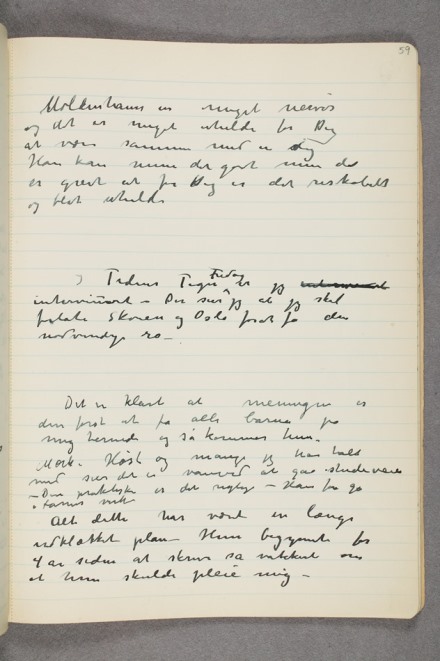 59
er meget nervøs
og det er meget uheldig for Dig
at være sammen med en
Han kan mene det godt men det
er greit at for Dig er det risikabelt
og blot uheldig
I Tidens Tegn Fredag er jeg
interviewet – Der sier jeg at jeg skal
forlate Skøien og Oslo for at få den
nødvendige ro –
Det er klart at meningen er
den først at få alle barna på
mig hernede og så kommer hun.
Mørk. Høst og mange jeg har talt
med sier det er vanvid at
– Den praktiske er det rigtige – Han får gå
Alt dette har vært en længe
udklækket plan – Hun begynte for
4 år siden at skrive så vakkert om
at hun skulde pleie mig –